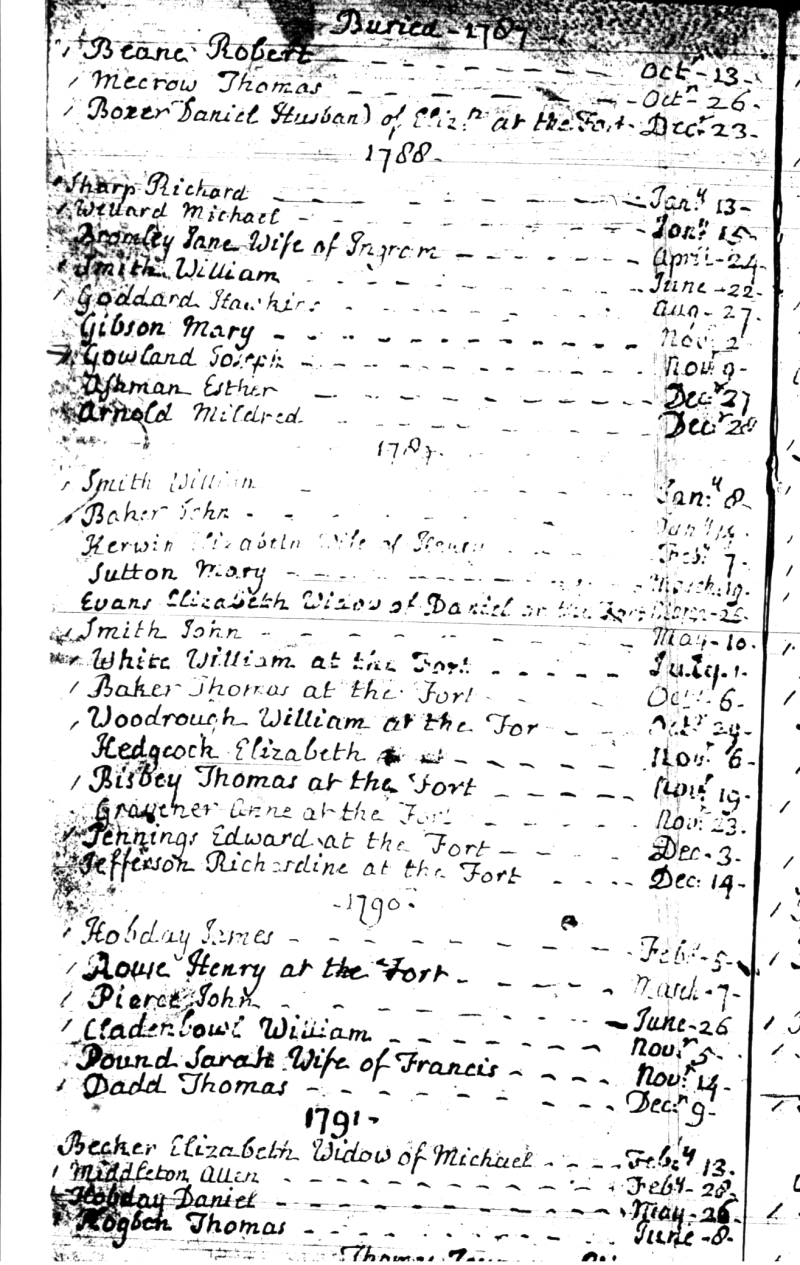 Buried - 1787
Beane Robert - - - - - - - Octr. 13.
Mecrow Thomas - - - - - - Octr. 26.
Boxer Daniel Husband of Elizh. at the Fort - Decr. 23.
1788.
Sharp Richard - - - - - - Jany. 13 -
Willard Michael - - - - - - Jany. 15.
Bromley Jane Wife of Ingram - - - - - April - 24.
Smith William - - - - - - June - 22.
Goddard Hawkins - - - - - - Aug - 27.
Gibson Mary - - - - - - - Nov. 2
Gowland Joseph - - - - - - - Novr. 9 -
Ashman Esther - - - - - - Decr. 27
Arnold Mildred - - - - - - Decr. 28
1789.
Smith William - - - Jany. 8.
Baker John - - - - - Jany.
Kerwin Elizabeth Wife of - - - Feby. 7.
Sutton Mary - - - - - - March. 19.
Evans Elizabeth Widow of Daniel at the Fort
Smith John - - - - - - May - 10.
White William at the Fort - - - - July. 1.
Baker Thomas at the Fort - - - Octr. 6.
Woodrough William at the For - - Octr. 29.
Hedgcock Elizabeth - - - - Novr. 6.
Bisbey Thomas at the Fort - - - - Novr. 19.
Gravener Anne at the Fort - - - - Novr. 23.
Jennings Edward at the Fort - - - - Dec. 3.
Jefferson Richardine at the Fort - - - - Dec. 14 -
- 1790 -
Hobday James - - - - - - - Feby. 5 -
Rouse Henry at the Fort - - - - - March - 7 -
Pierce John - - - - - - - June - 26
Cladenbowl William - - - - - - Novr. 5.
Pound Sarah Wife of Francis - - - - Novr. 14 -
Dadd Thomas - - - - - - - Decr. 9 -
1791 -
Becker Elizabeth Widow of Michael - - - - Feby. 13.
Middleton Allen - - - - - - - Feby. - 28.
Hobday Daniel - - - - - - - May - 26.
Hogben Thomas - - - - - - - June - 8 -
Thomas